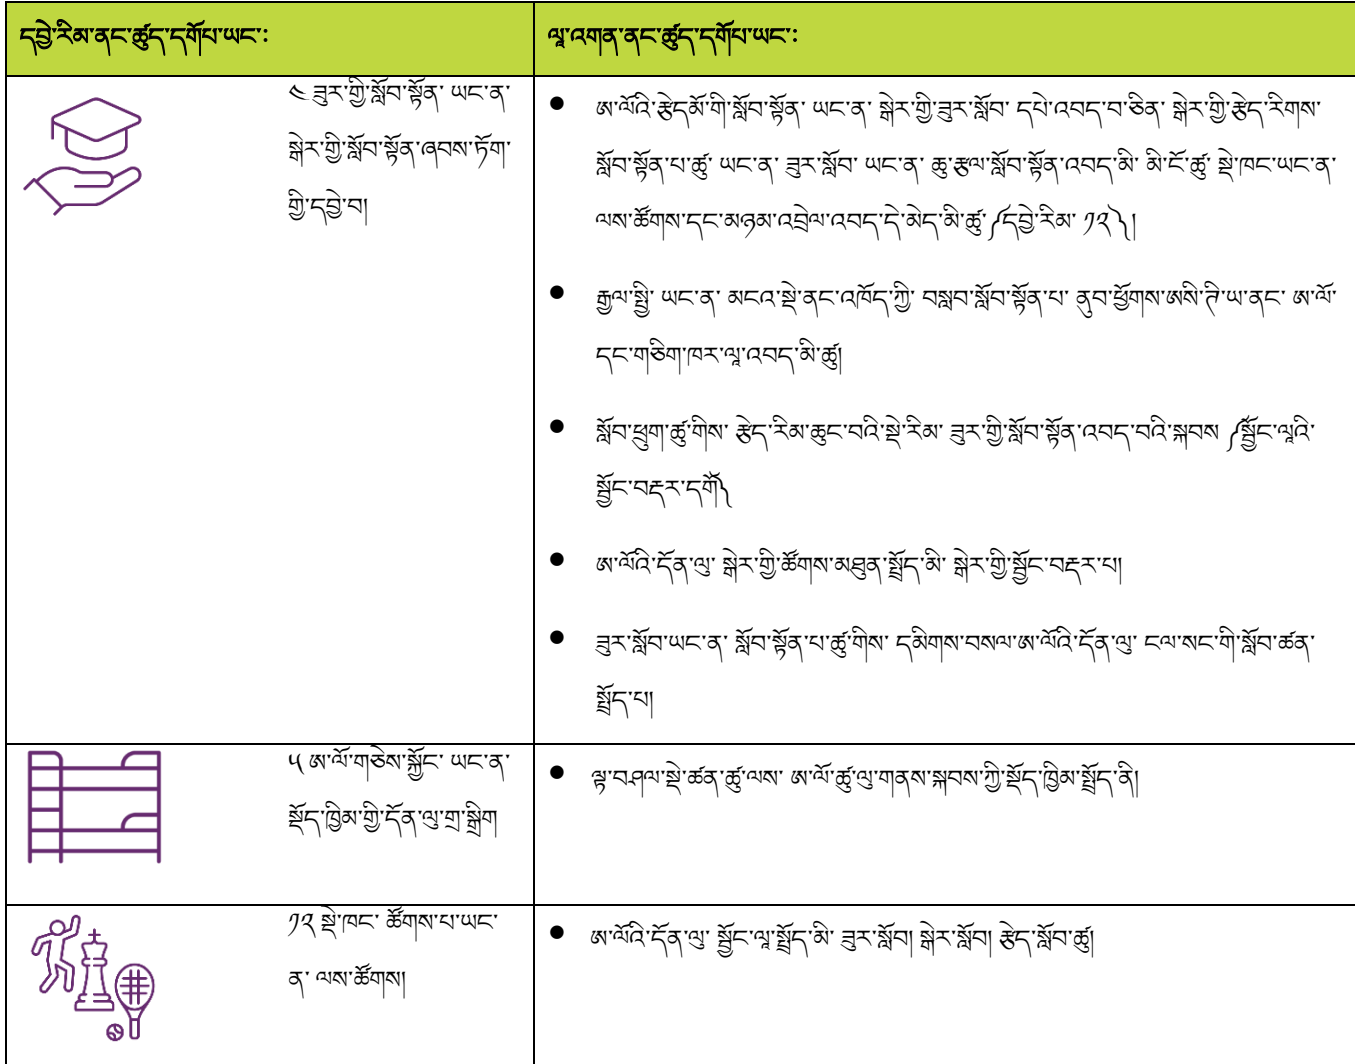 དབྱེ་རིམ་ནང་ཚུད་དགོཔ་ཡང་:
ལཱ་འགན་ནང་ཚུད་དགོཔ་ཡང་:
༤ ཟུར་གྱི་སློབ་སྟོན་ ཡང་ན་
སྒེར་གྱི་སློབ་སྟོན་ཞབས་ཏོག་
གྱི་དབྱེ་བ།
● ཨ་ལོའི་རྩེདམོ་གི་སློབ་སྟོན་ ཡང་ན་ སྒེར་གྱི་ཟུར་སློབ་ དཔེ་འབད་བ་ཅིན་ སྒེར་གྱི་རྩེད་རིགས་
སློབ་སྟོན་པ་ཚུ་ ཡང་ན་ ཟུར་སློབ་ ཡང་ན་ ཆུ་རྩལ་སློབ་སྟོན་འབད་མི་ མི་ངོ་ཚུ་ སྡེ་ཁང་ཡང་ན་
ལས་ཚོགས་དང་མཉམ་འབྲེལ་འབད་དེ་མེད་མི་ཚུ་ ༼དབྱེ་རིམ་ ༡༢༽།
● རྒྱལ་སྤྱི་ ཡང་ན་ མངའ་སྡེ་ནང་འཁོད་ཀྱི་ བསླབ་སློབ་སྟོན་པ་ ནུབ་ཕྱོགས་ཨསི་ཊི་ཡ་ནང་ ཨ་ལོ་
དང་གཅིག་ཁར་ལཱ་འབད་མི་ཚུ།
● སློབ་ཕྲུག་ཚུ་གིས་ རྩེད་རིམ་ཆུང་བའི་སྡེ་རིམ་ ཟུར་གྱི་སློབ་སྟོན་འབད་བའི་སྐབས ༼སྦྱོང་ལཱའི་
སྦྱོང་བརྡར་དགོ༽
● ཨ་ལོའི་དོན་ལུ་ སྒེར་གྱི་ཚོགས་མཐུན་སྤྲོད་མི་ སྒེར་གྱི་སྦྱོང་བརྡར་པ།
● ཟུར་སློབ་ཡང་ན་ སློབ་སྟོན་པ་ཚུ་གིས་ དམིགས་བསལ་ཨ་ལོའི་དོན་ལུ་ ངལ་སང་གི་སློབ་ཚན་
སྤྲོད་པ།
༥ ཨ་ལོ་གཅེས་སྐྱོང་ ཡང་ན་
སྡོད་ཁྱིམ་གྱི་དོན་ལུ་གྲ་སྒྲིག
● ལྟ་བཤལ་སྡེ་ཚན་ཚུ་ལས་ ཨ་ལོ་ཚུ་ལུ་གནས་སྐབས་ཀྱི་སྡོད་ཁྱིམ་སྤྲོད་ནི།
༡༢ སྡེ་ཁང་ ཚོགས་པ་ཡང་
ན་ ལས་ཚོགས།
● ཨ་ལོའི་དོན་ལུ་ སྦྱོང་ལཱ་སྤྲོད་མི་ ཟུར་སློབ། སྒེར་སློབ། རྩེད་སློབ་ཚུ།